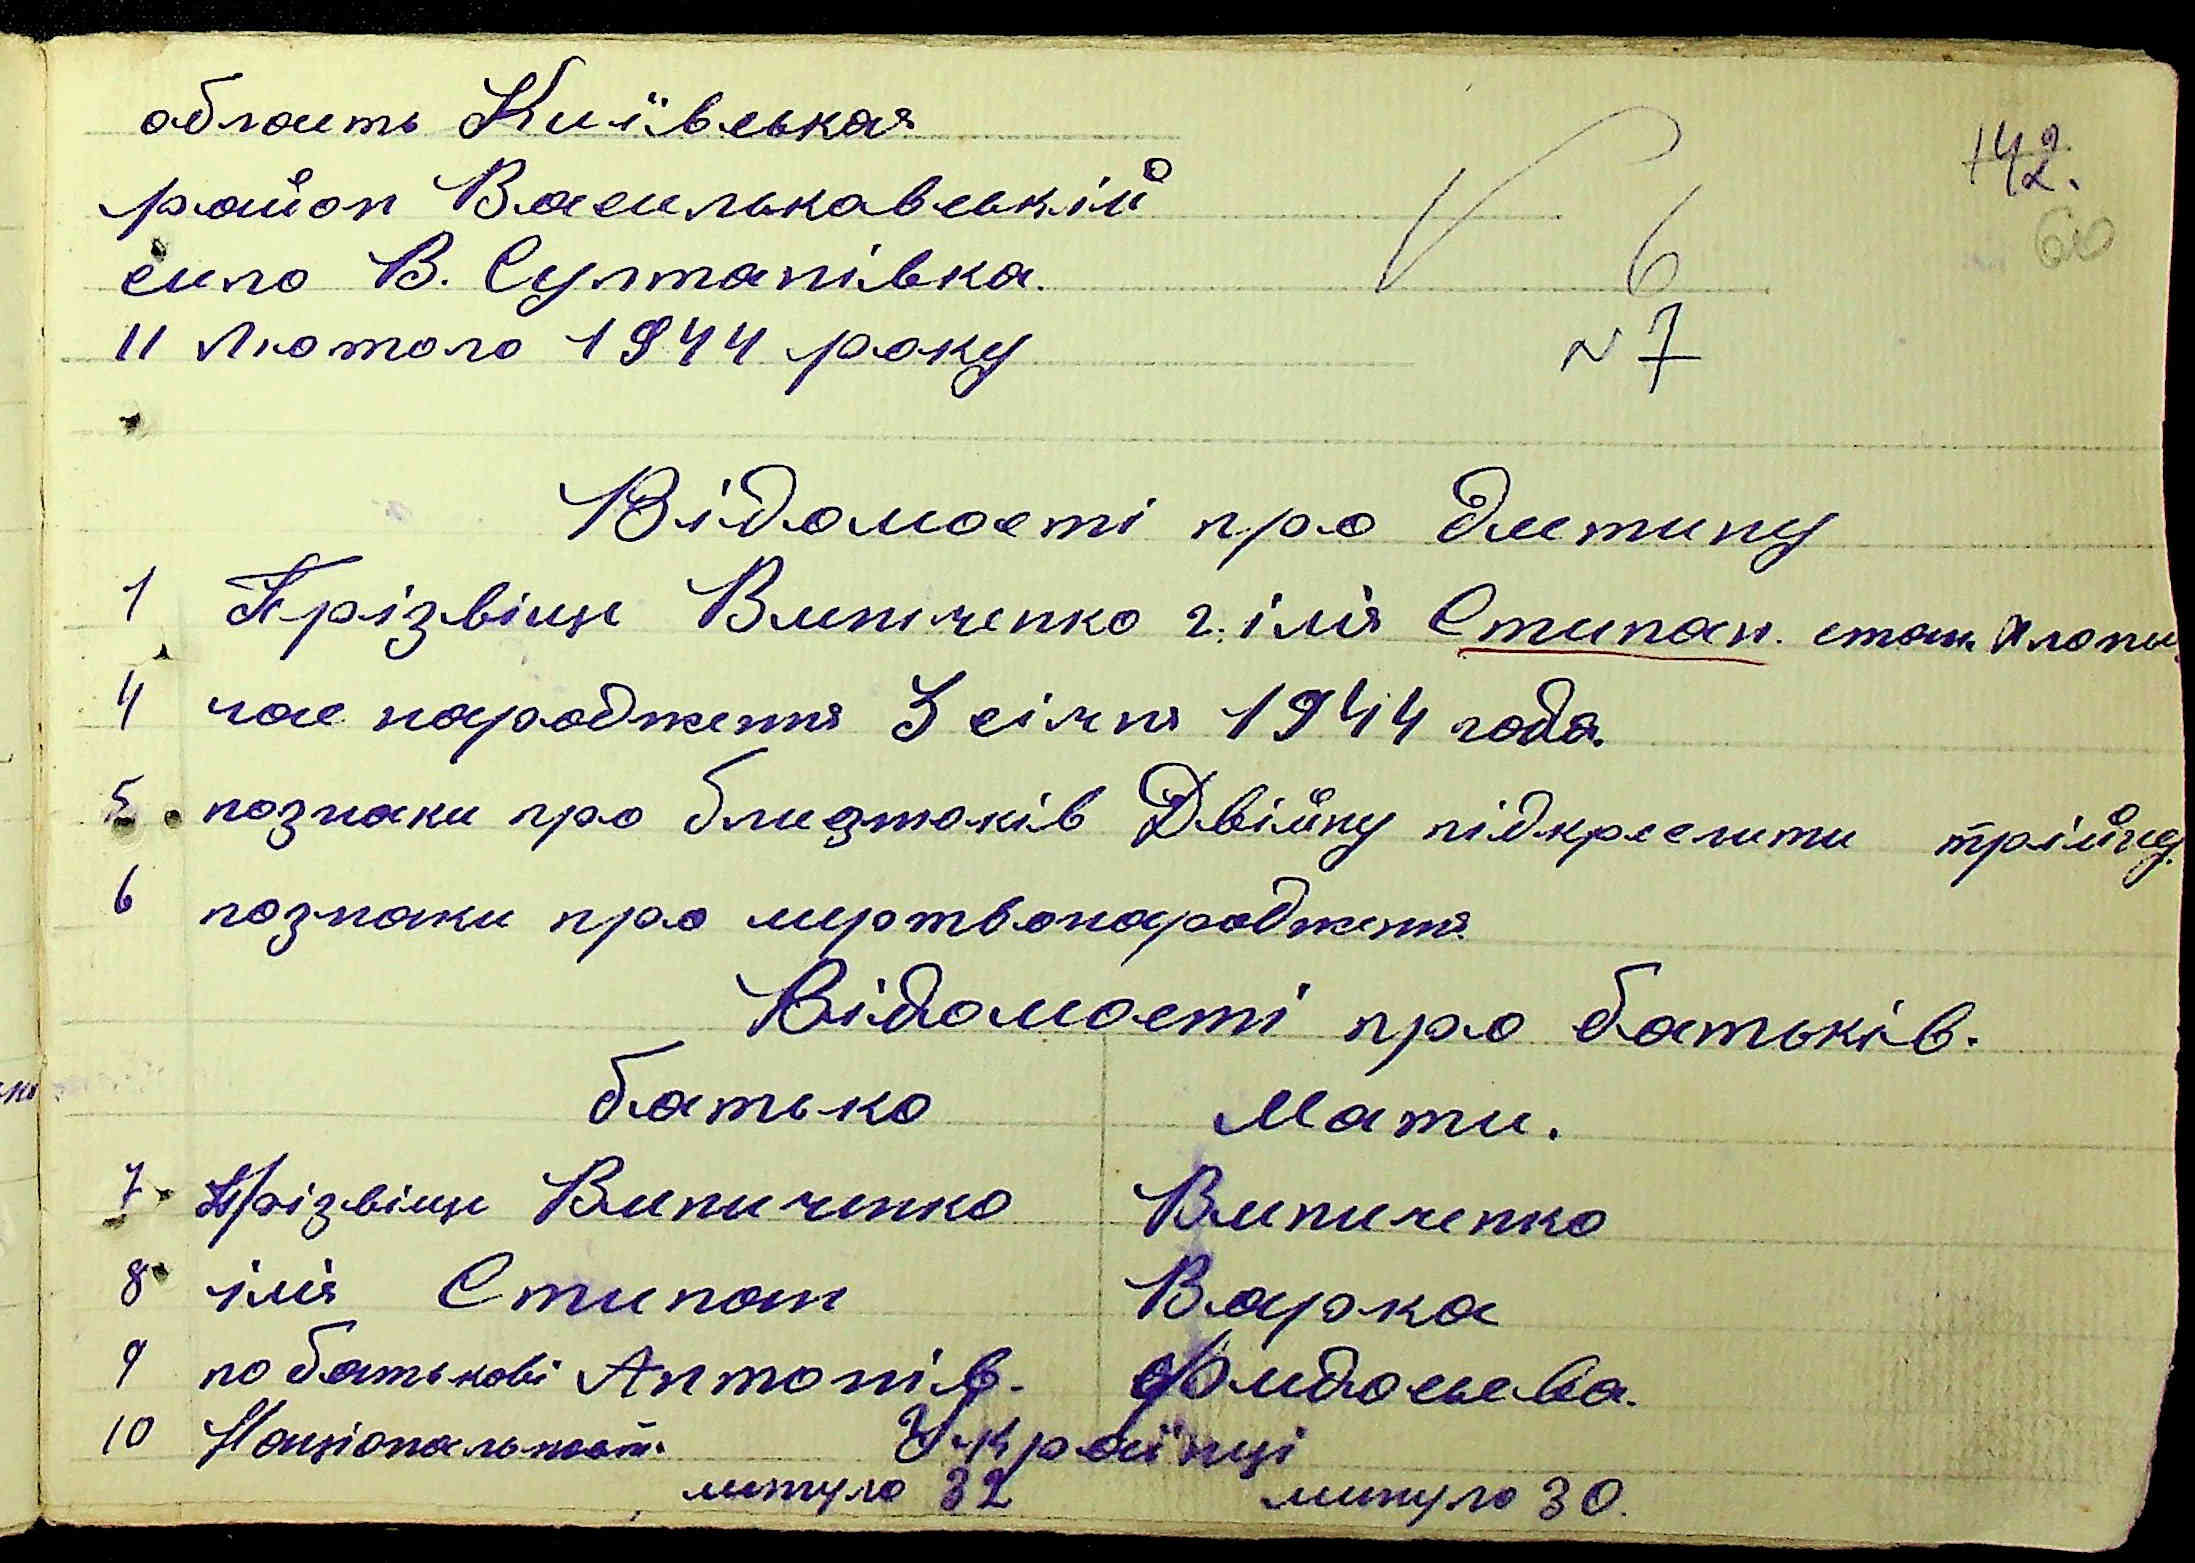 область Київськая
142.
район Василькавській
60
6
село В. Султанівка.
11 Лютого 1944 року
N 7
Відомості про дитину
1 Прізвіще Винниченко 2. імя Степан. стать хлопч.
4 час народження 3 січня 1944 года.
5. познаки про близнюків Двійну підкреслити трійну.
6 познаки про мертвонародження.
Відомості про батьків.
батько Мати.
7. Прізвіще Виниченко Виниченко
8 імя Степан Варка
9 по батькові Антонів. Фидосьева.
10 Національност. Українці
минуло 32 минуло 30.